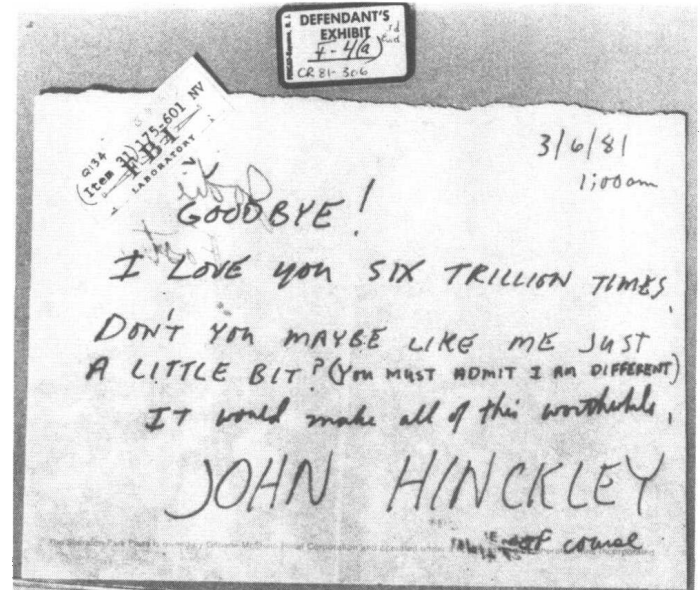 DEFENDANT'S
EXHIBIT
CR 81-306
Q134
(Item 31) 175-601 NV
FBI
LABORATORY
3/6/81
1:00am
GOODBYE!
I LOVE you SIX TRILLION TIMES.
DON'T YOU MAYBE LIKE ME JUST
A LITTLE BIT? (YOU MUST ADMIT I AM DIFFERENT)
IT would make all of this worthwhile,
JOHN HINCKLEY
of course